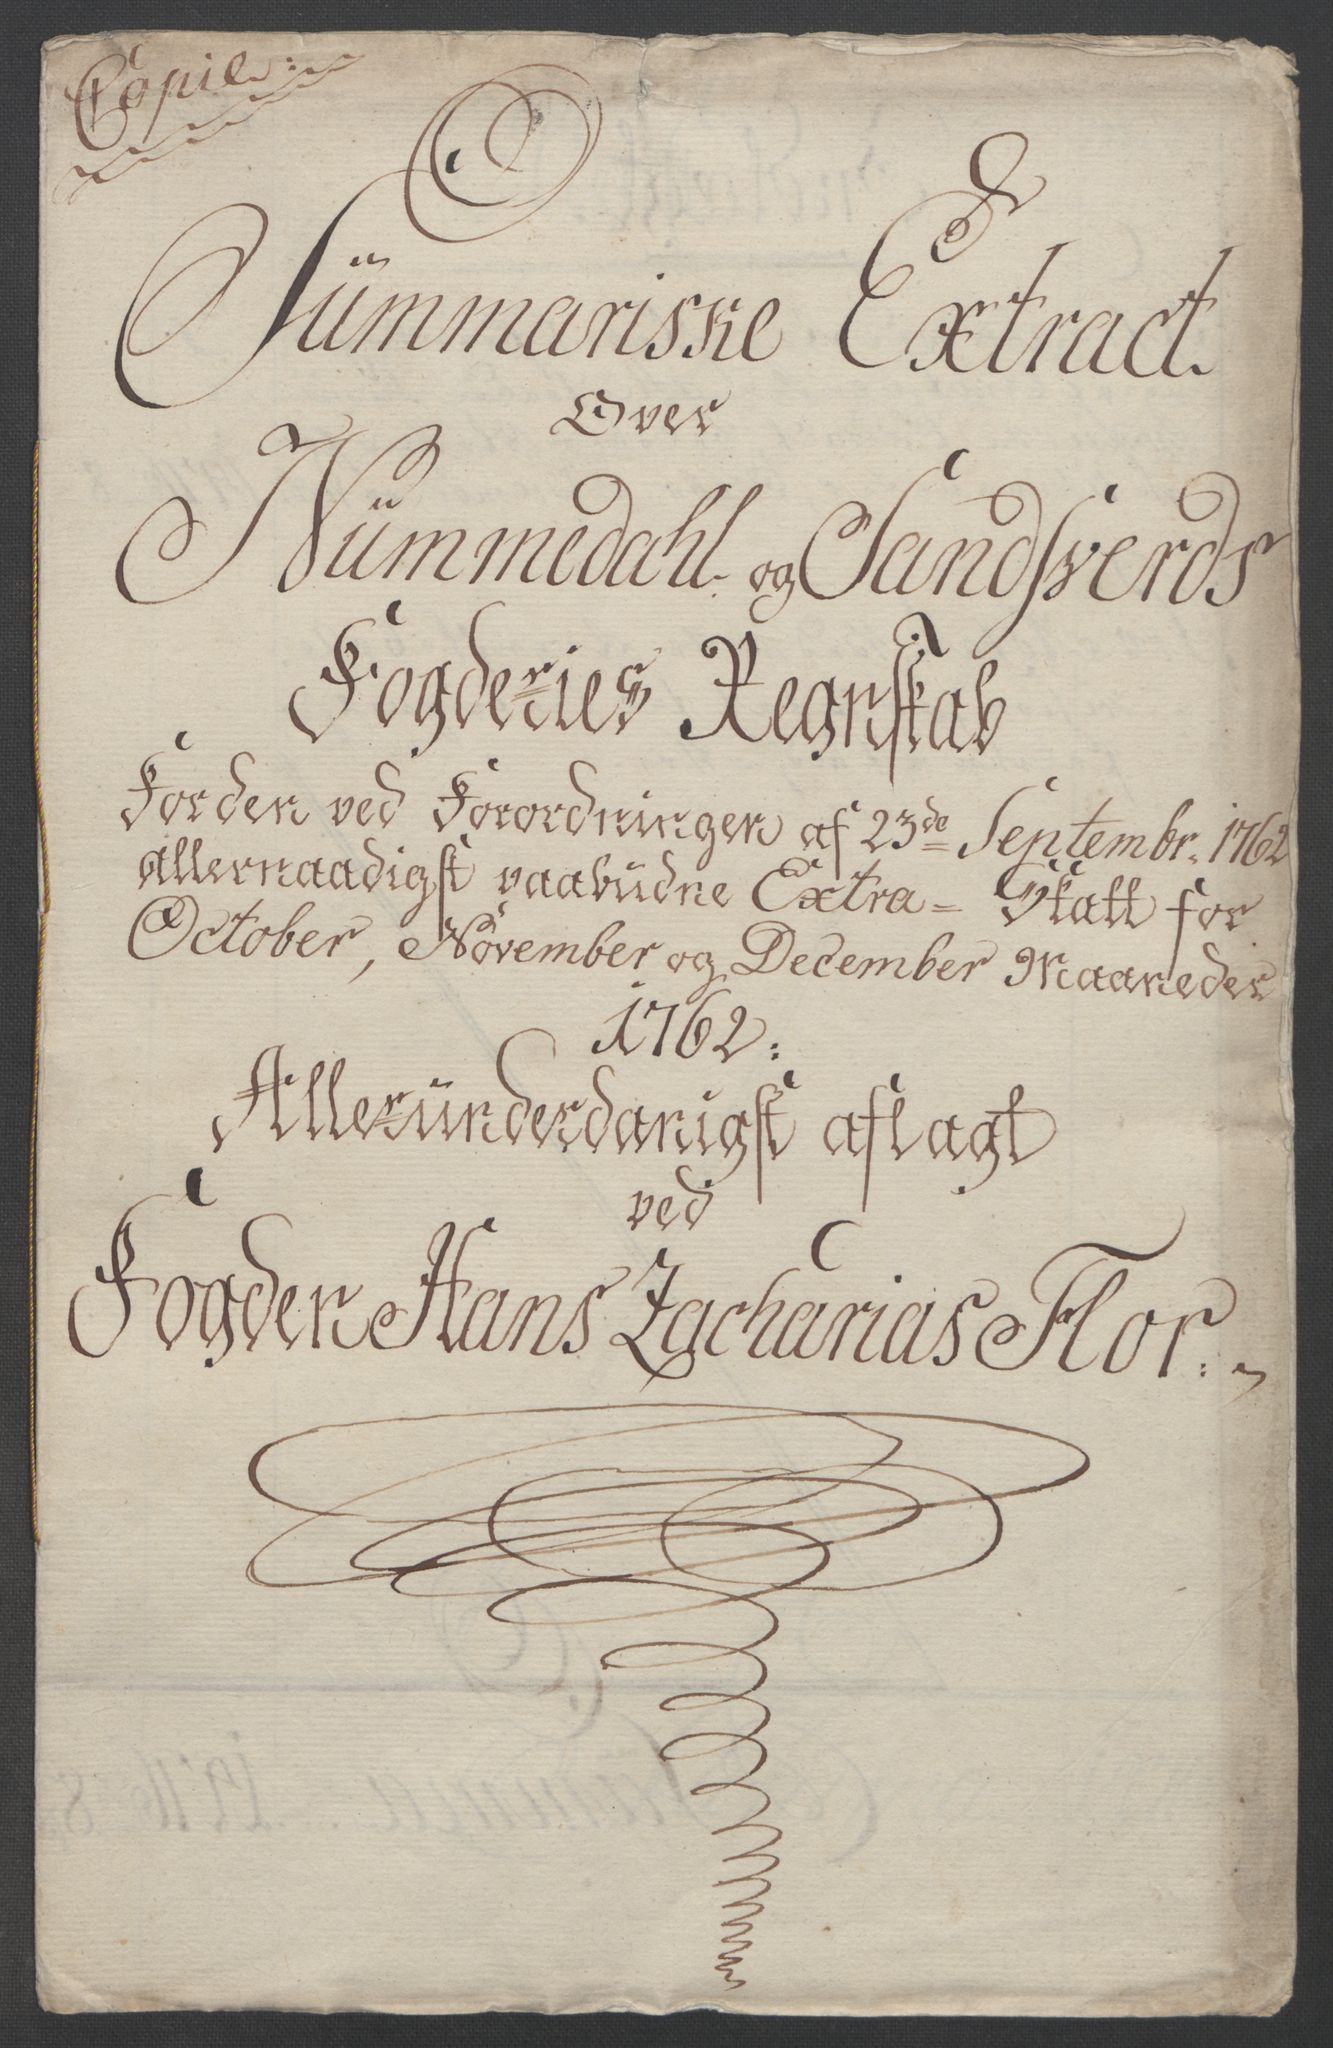 Copie:
Sümmariske Extract.
Over
Nümmedahl og Sandsverds
Fogderies Regnskab
For den ved Forordningen af 23de Septembr. 1762
allernaadigst paabüdne Extra= Skatt for
October, November og December Maaneder
1762:
Alleründerdanigst aflagt
ved
Fogden Hans Zacharias Flor.